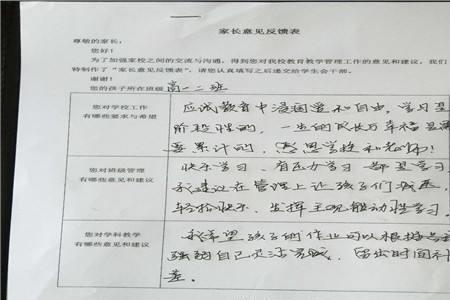 家长意见反馈表
尊敬的家长：
您好！
为了加强家校之间的交流与沟通，得到您对我校教育教学管理工作的意见和建议，我们
特制作了“家长意见反馈表”，请您认真填写之后递交给学生会干部。
谢谢！
您的孩子所在班级 高一二班
您对学校工作
有哪些要求与希望
应试教育中浸润爱和自由，学习是
阶段性的，一生的成长与幸福是需
要累计的，感恩学校和老师！
您对班级管理
有哪些意见和建议
快乐学习 有压力学习 都是学习
我建议在管理上让孩子们减压，
轻松快乐，发挥主观能动性学习
您对学科教学
有哪些意见和建议
我希望孩子们的作业可以根据
强弱自己 留出时间补
差。